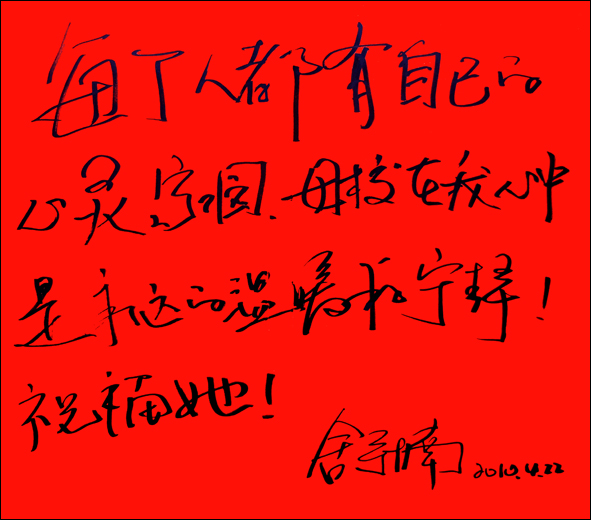 每个人都有自己的
心灵家园.母校在我心中
是永远的温暖和宁静!
祝福她!
舒楠 2010.4.22